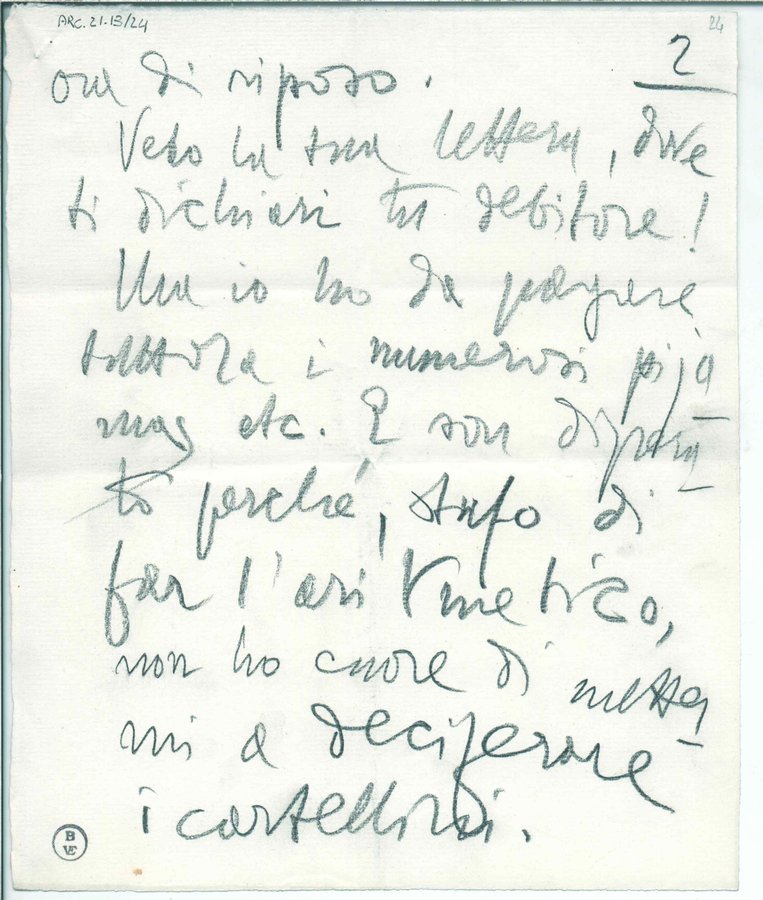 ARC. 21-13/24
24
2
ora di riposo.
Vedo la tua lettera, dove
ti dichiari tu debitore!
Ma io ho da pagare
tuttora i numerosi pija
mas etc. E son dispera
to perché, stufo di
far l'aritmetico,
non ho cuore di metter
mi a decifrare
i cartellini.
B
VE